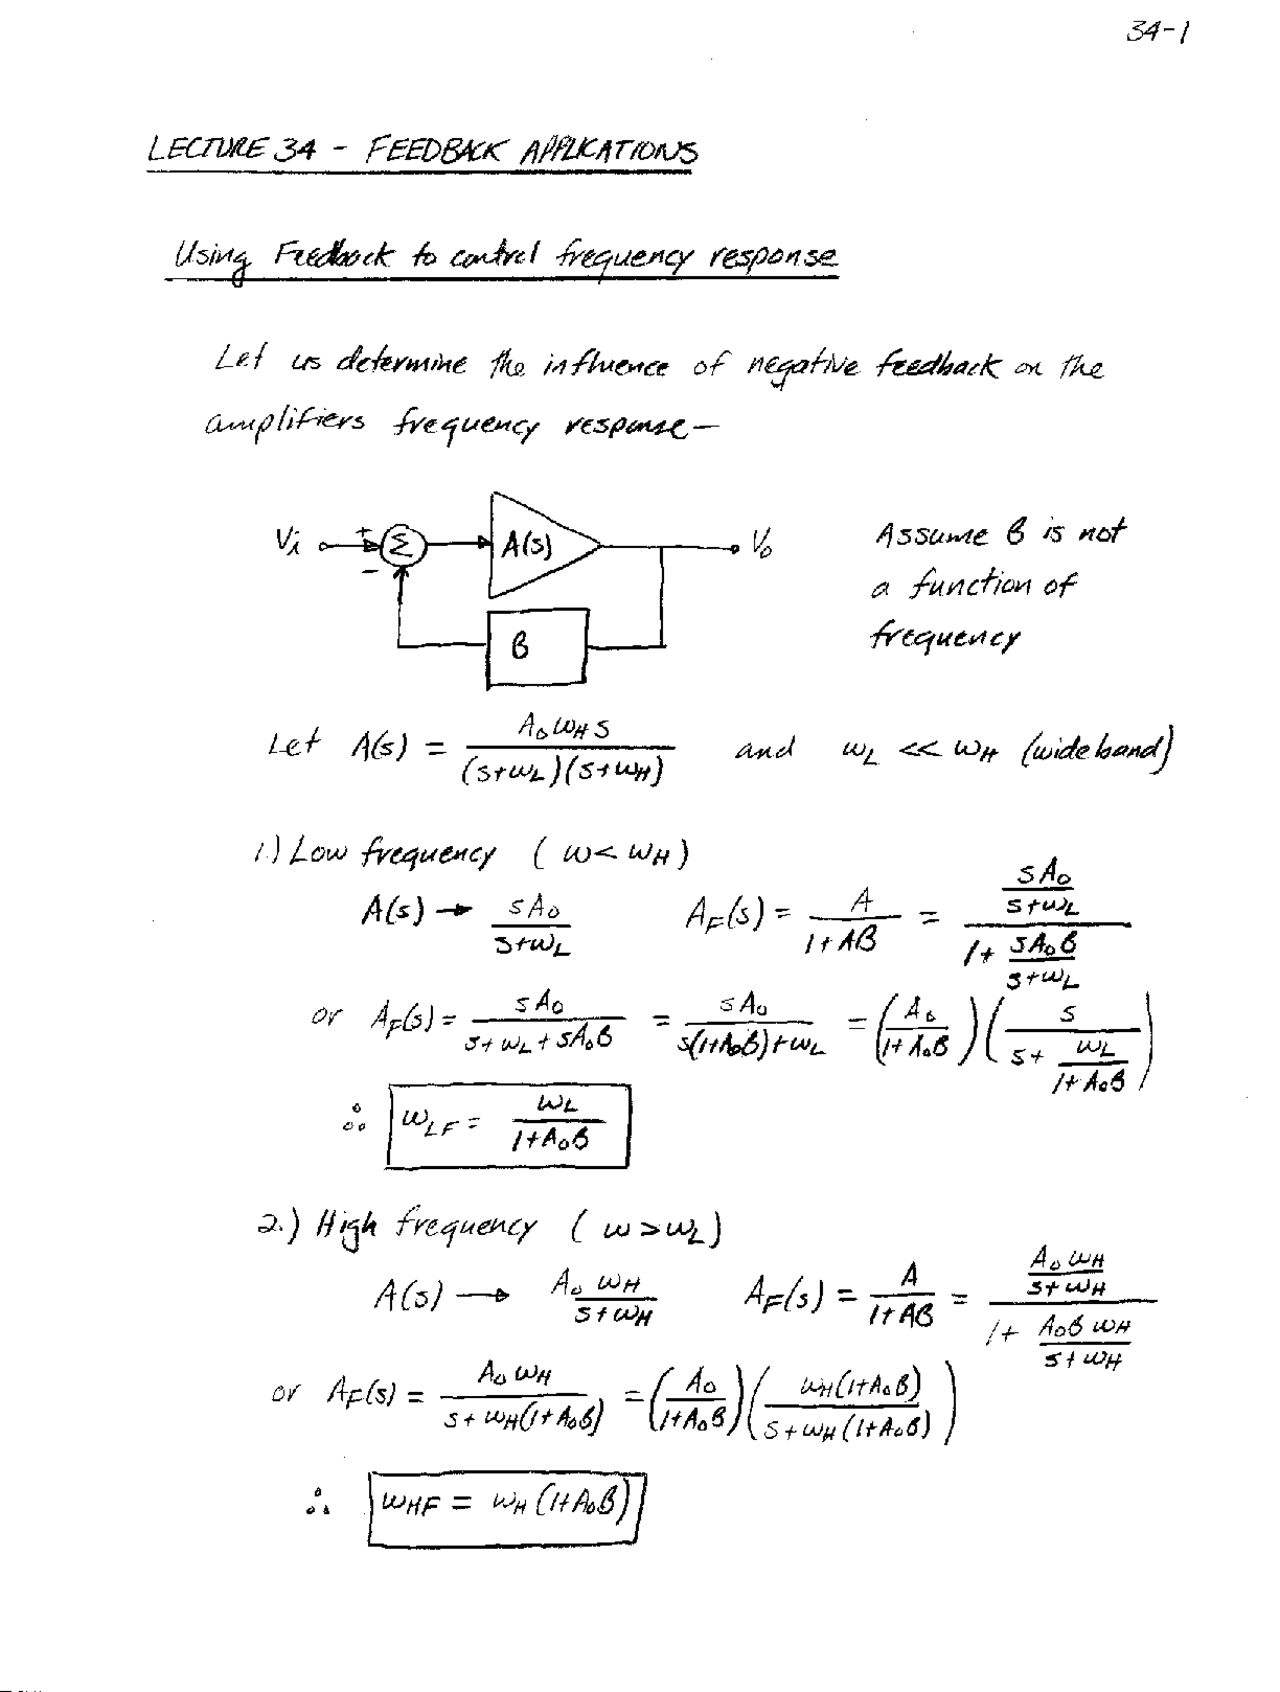 34-1
LECTURE 34 - FEEDBACK APPLICATIONS
Using Feedback to control frequency response
Let us determine the influence of negative feedback on the
amplifiers frequency response —
Vi + - Σ A(s) Vo
β
Assume β is not
a function of
frequency
Let A(s) = A₀ωHs / (s+ωL)(s+ωH) and ωL << ωH (wideband)
1.) Low frequency (ω < ωH)
A(s) → sA₀ / s+ωL AF(s) = A / 1+Aβ = (sA₀ / s+ωL) / (1 + sA₀β / s+ωL)
or AF(s) = sA₀ / s+ωL+sA₀β = sA₀ / s(1+A₀β)+ωL = (A₀ / 1+A₀β)(s / s + ωL / 1+A₀β)
∴ ωLF = ωL / 1+A₀β
2.) High frequency (ω > ωL)
A(s) → A₀ωH / s+ωH AF(s) = A / 1+Aβ = (A₀ωH / s+ωH) / (1 + A₀βωH / s+ωH)
or AF(s) = A₀ωH / s+ωH(1+A₀β) = (A₀ / 1+A₀β)(ωH(1+A₀β) / s+ωH(1+A₀β))
∴ ωHF = ωH(1+A₀β)